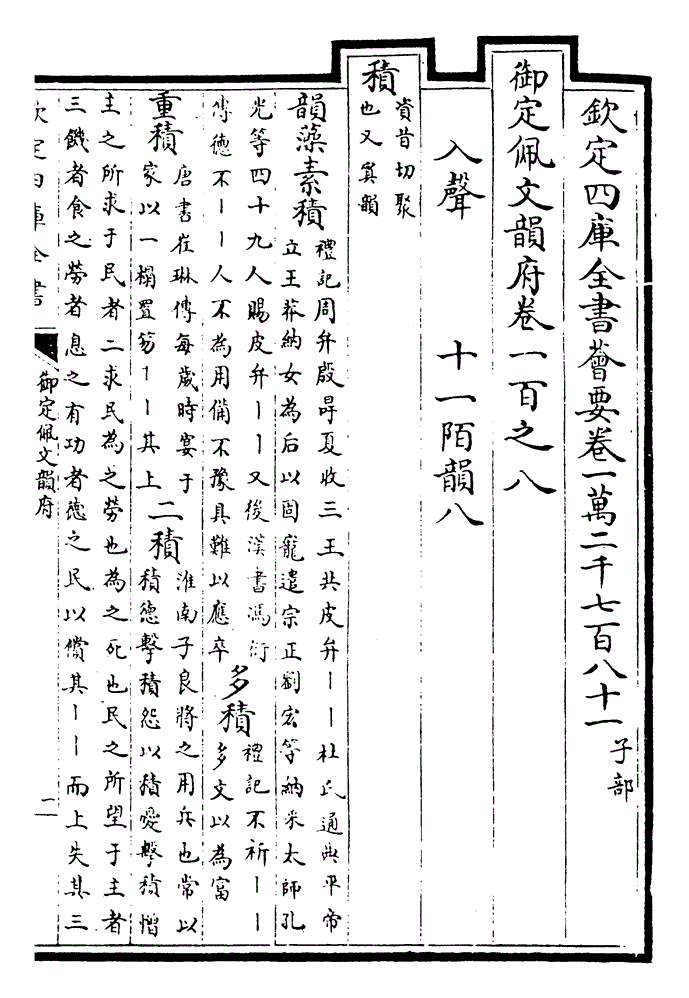 欽定四庫全書薈要卷一萬二千七百八十一 子部
御定佩文韻府卷一百之八
入聲 十一陌韻八
積 資昔切聚
也又寘韻
韻藻素積 禮記周弁殷冔夏收三王共皮弁丨丨杜氏通典平帝
立王莽納女為后以固寵遣宗正劉宏等納采太師孔
光等四十九人賜皮弁丨丨又後漢書馮衍
傳德不丨丨人不為用備不豫具難以應卒
多積 禮記不祈丨丨
多文以為富
重積 唐書崔琳傳每歲時宴于
家以一榻置笏丨丨其上
二積 淮南子良將之用兵也常以
積德擊積怨以積愛擊積憎
主之所求于民者二求民為之勞也為之死也民之所望于主者
三饑者食之勞者息之有功者德之民以償其丨丨而上失其三
欽定四庫全書
御定佩文韻府